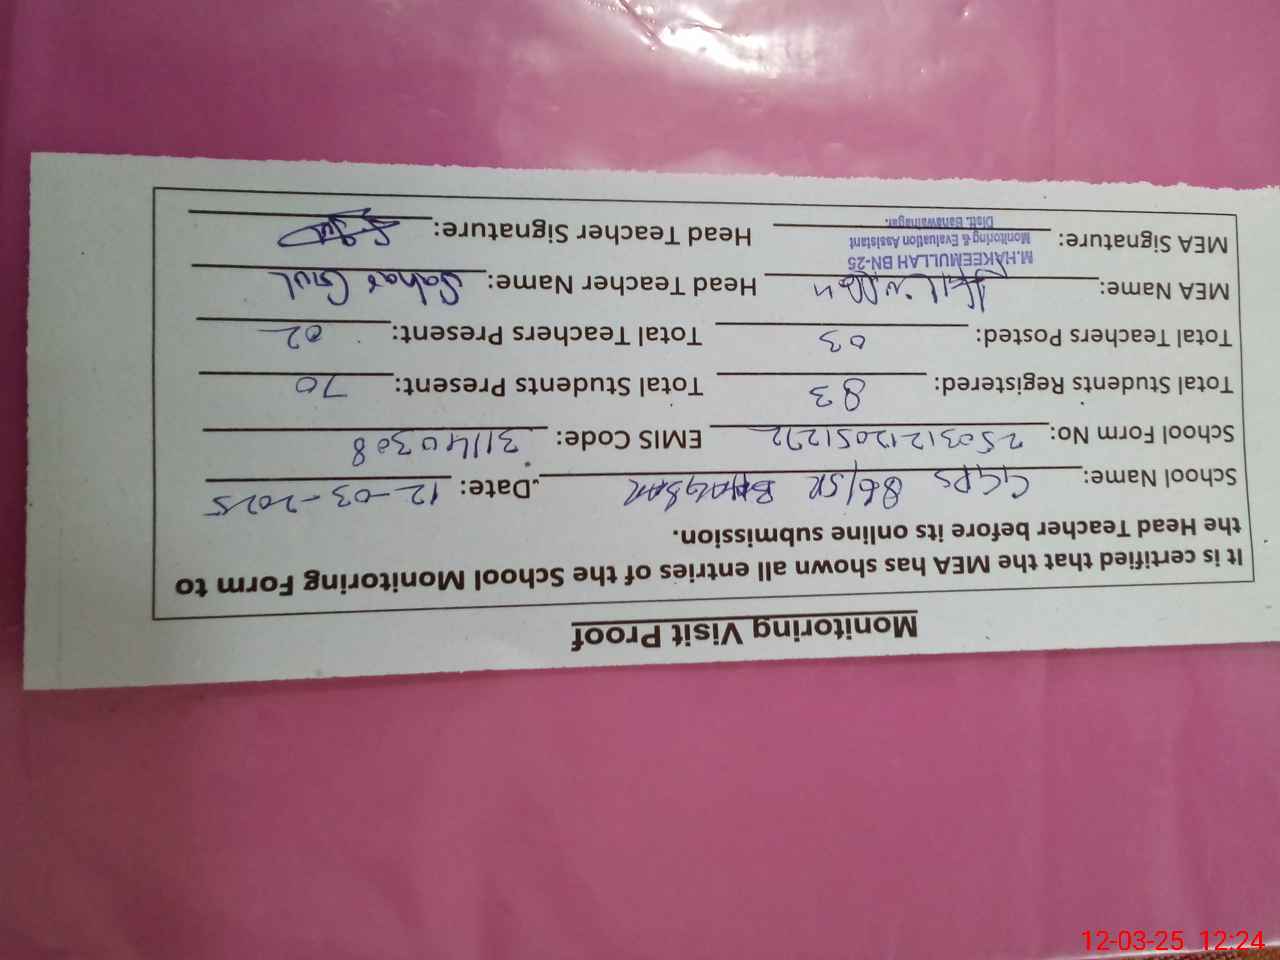 Monitoring Visit Proof
It is certified that the MEA has shown all entries of the School Monitoring Form to
the Head Teacher before its online submission.
School Name: GGPS 86/5R Date: 12-03-2025
School Form No: 25031212051272 EMIS Code: 31140308
Total Students Registered: 83 Total Students Present: 70
Total Teachers Posted: 03 Total Teachers Present: 02
MEA Name: Head Teacher Name: Sahar Gul
M.HAKEEMULLAH BN-25
Monitoring & Evaluation Assistant
Distt. Bahawalnagar.
MEA Signature: Head Teacher Signature:
12-03-25 12:24